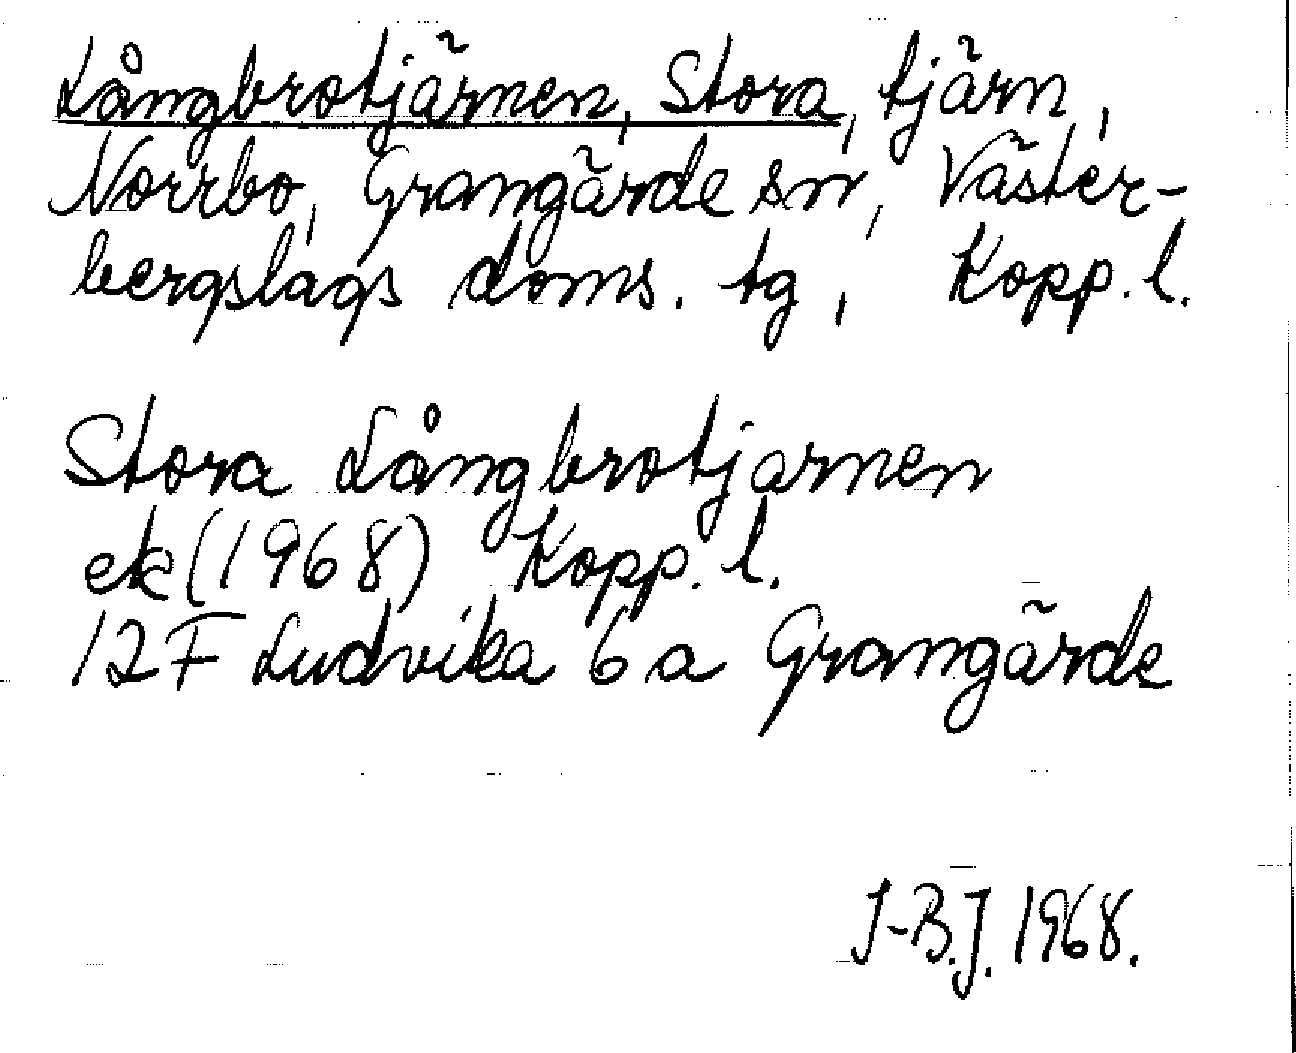 Långbrotjärnen, Stora, tjärn,
Norrbo, Grangärde sn, Väster-
bergslags doms. tg, Kopp. l.
Stora Långbrotjarnen
ek (1968) Kopp. l.
12F Ludvika 6 a Grangärde
I-B.J. 1968.